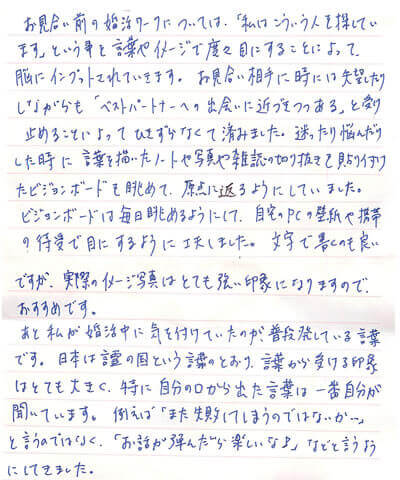 お見合い前の婚活ワークについては、「私はこういう人を探してい
ます」という事を言葉やイメージで度々目にすることによって
脳にインプットされていきます。お見合い相手に時には失望したり
しながらも「ベストパートナーへの出会いに近づきつつある」と受け
止めることによってひきずらなくて済みました。迷ったり悩んだり
した時に言葉を描いたノートや写真や雑誌の切り抜きを貼り付け
たビジョンボードを眺めて、原点に返るようにしていました。
ビジョンボードは毎日眺めるようにして、自宅のPCの壁紙や携帯
の待受で目にするように工夫しました。文字で書くのも良い
ですが、実際のイメージ写真はとても強い印象になりますので、
おすすめです。
あと私が婚活中に気を付けていたのが、普段発している言葉
です。日本は言霊の国という言葉のとおり、言葉から受ける印象
はとても大きく、特に自分の口から出た言葉は一番自分が
聞いています。例えば「また失敗してしまうのではないか…」
と言うのではなく、「お話が弾んだら楽しいなぁ」などと言うよう
にしてきました。